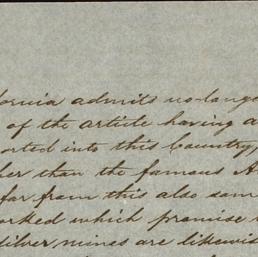 ornia admits no longe
of the article having a
orted into this Country,
her than the famous A
far from this also som
orked which promise
silver mines are likewis